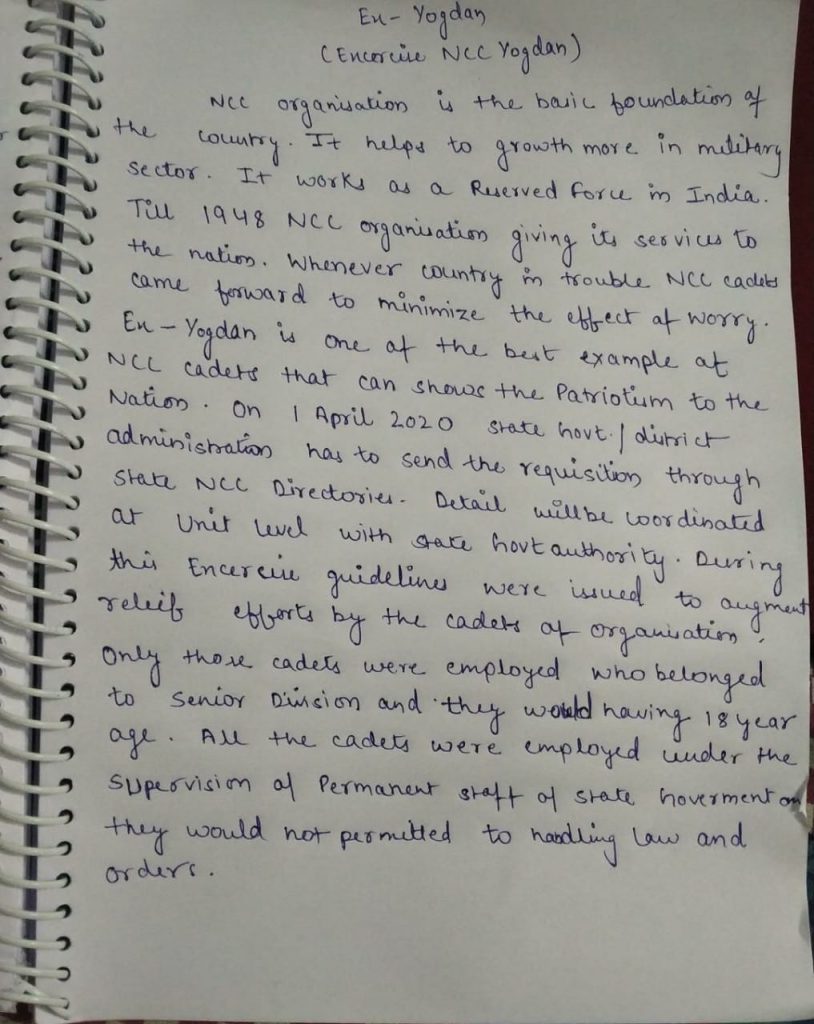 Ex- Yogdan
(Encercise NCC Yogdan)
NCC organisation is the basic foundation of
the country. It helps to growth more in military
sector. It works as a Reserved force in India.
Till 1948 NCC organisation giving its services to
the nation. Whenever country in trouble NCC cadets
came forward to minimize the effect of worry.
Ex - Yogdan is one of the best example of
NCC cadets that can shows the Patriotism to the
Nation. On 1 April 2020 state Govt./district
administration has to send the requisition through
State NCC Directories. Detail will be coordinated
at Unit level with state Govt authority. During
this Encercise guidelines were issued to augment
releif efforts by the cadets of organisation.
Only those cadets were employed who belonged
to Senior Division and they would having 18 year
age. All the cadets were employed under the
Supervision of Permanent staff of state Goverment
they would not permitted to handling law and
orders.